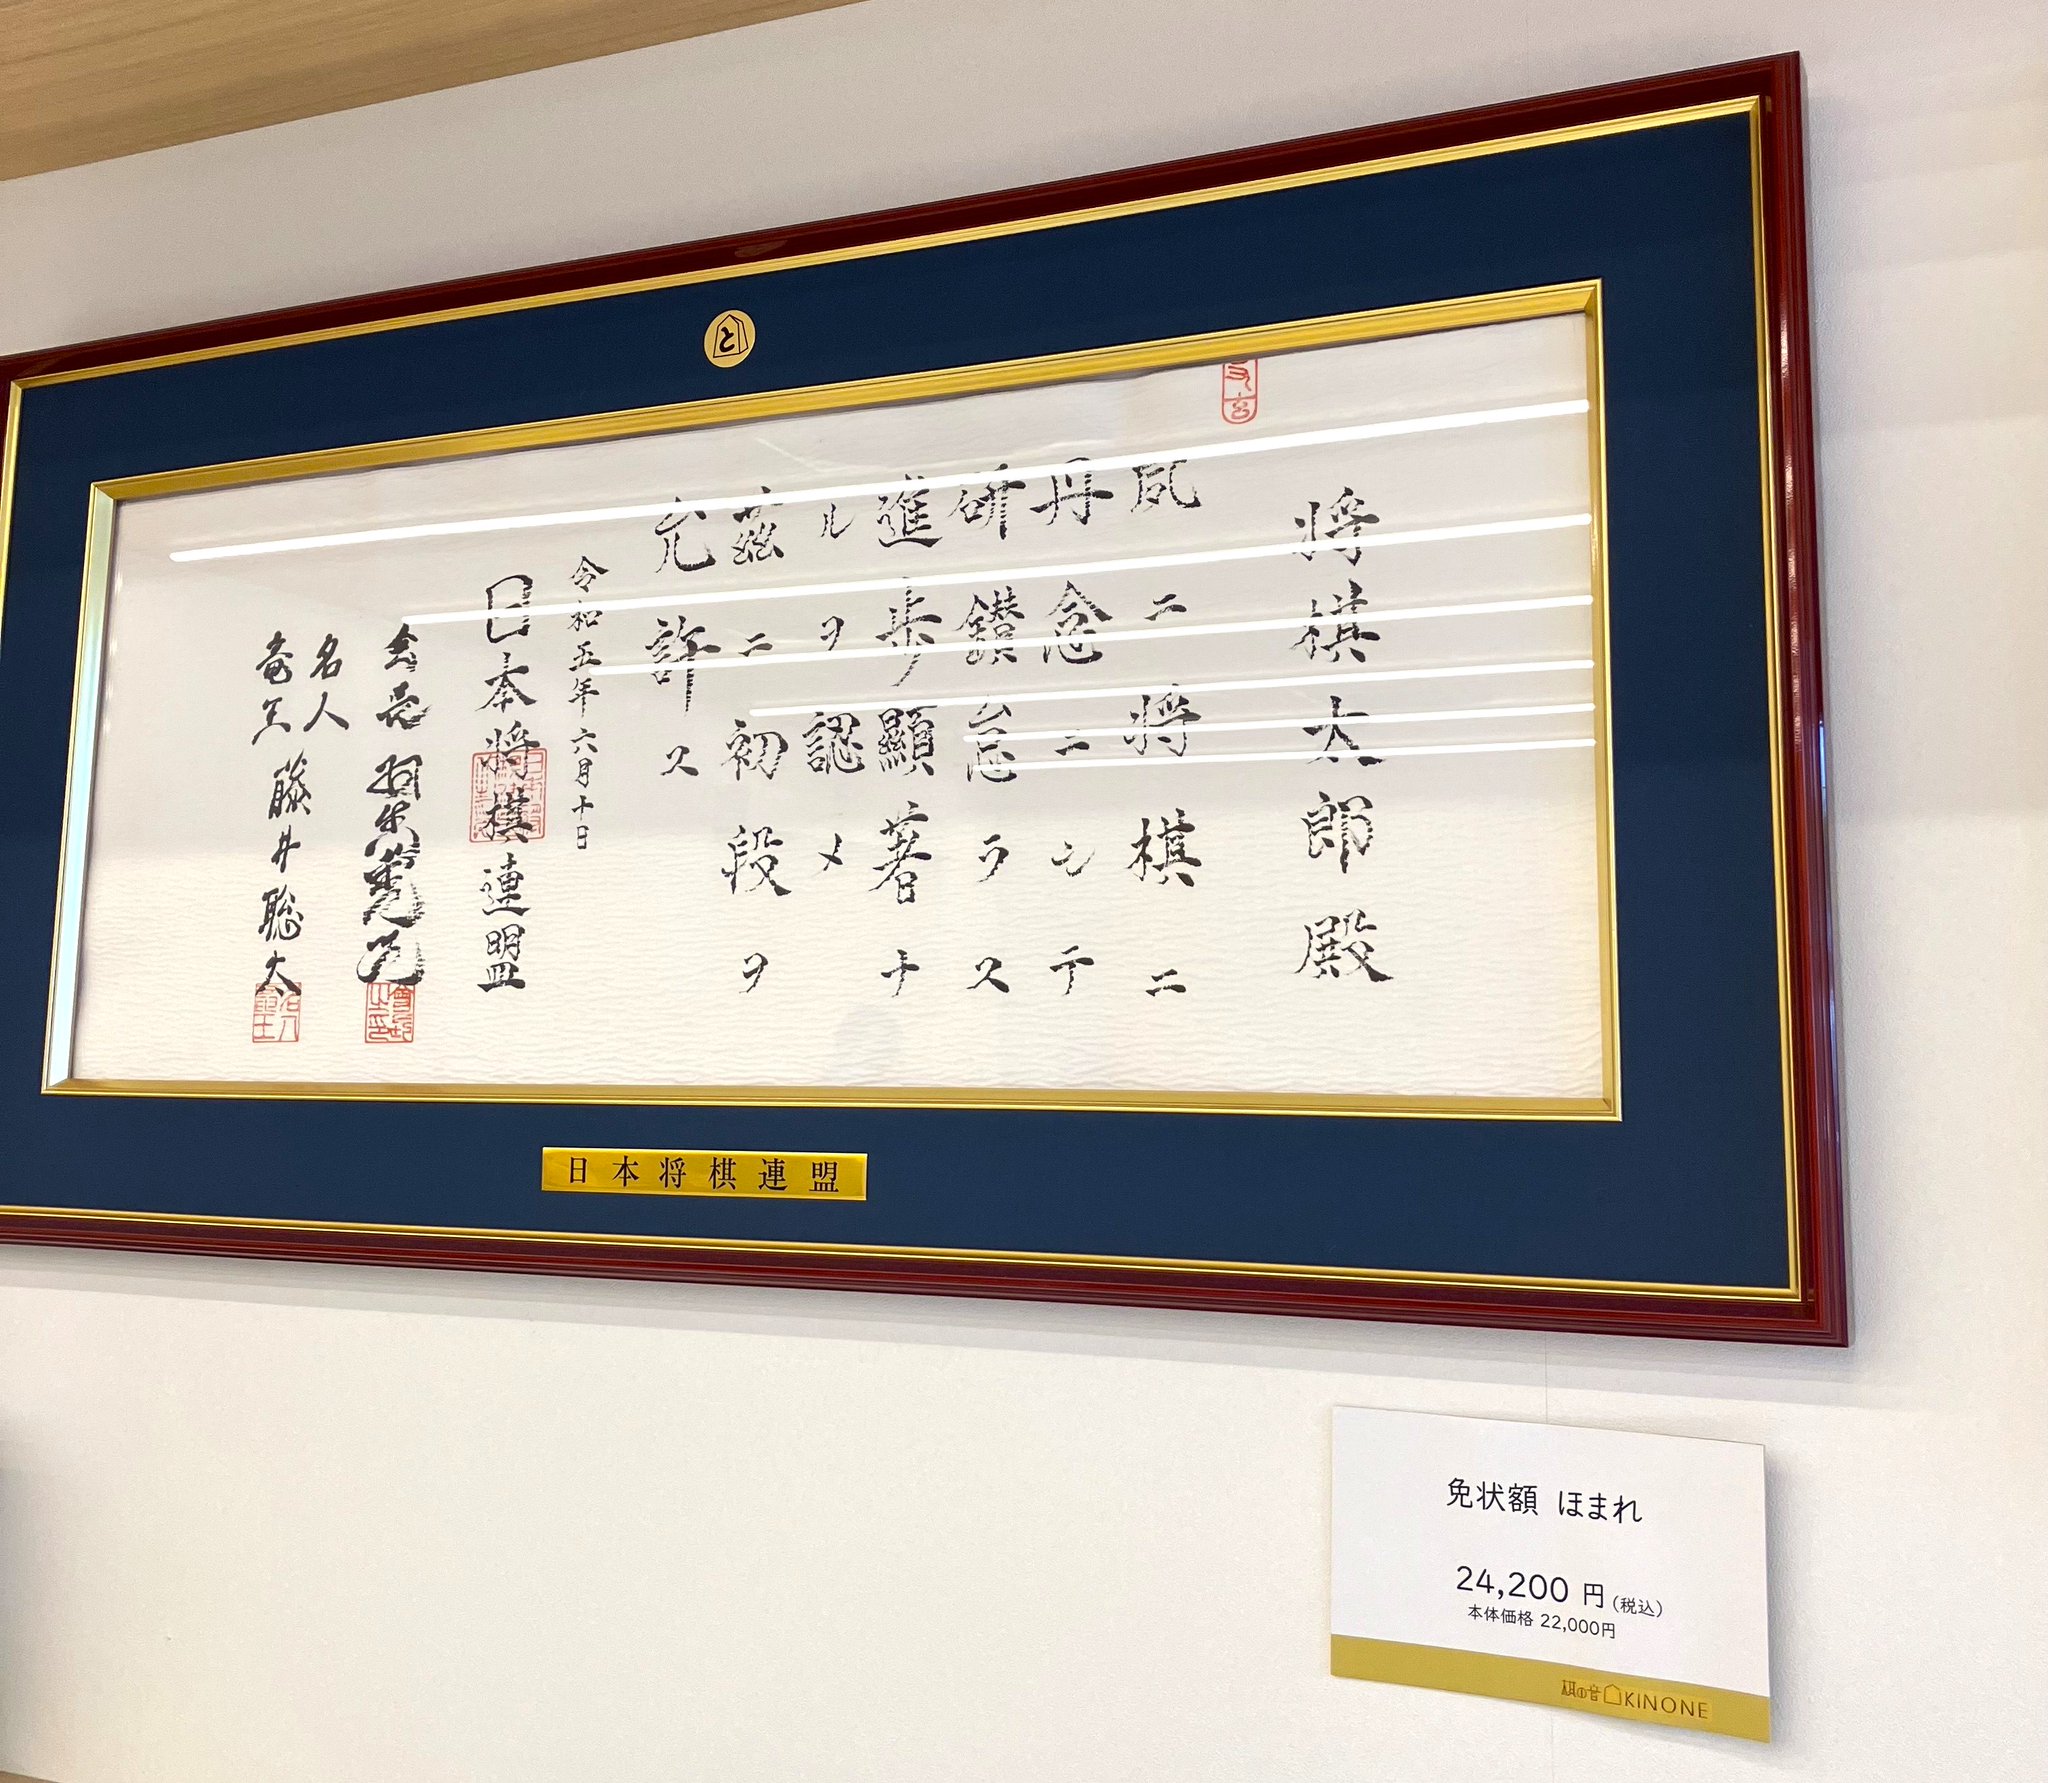 と
将棋太郎殿
夙ニ将棋ニ
丹念ニシテ
研鑚怠ラス
進歩顕著ナ
ルヲ認メ
茲ニ初段ヲ
允許ス
令和五年六月十日
日本将棋連盟
会長 羽生善治
名人
竜王 藤井聡太
日本将棋連盟
免状額 ほまれ
24,200 円 (税込)
本体価格 22,000円
棋の音 KINONE